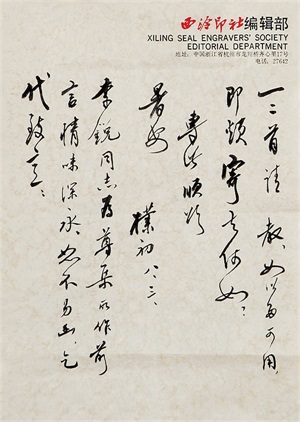 西泠印社编辑部
XILING SEAL ENGRAVERS' SOCIETY
EDITORIAL DEPARTMENT
地址：中国浙江省杭州市龙翔桥齐心里17号
电话：27642
一二首请教，如以为可用，
即烦寄去何如？
专此顺颂
暑安
樸初 八、三、
李锐同志为尊集所作前
言情味深永，不易 乞
代致意：